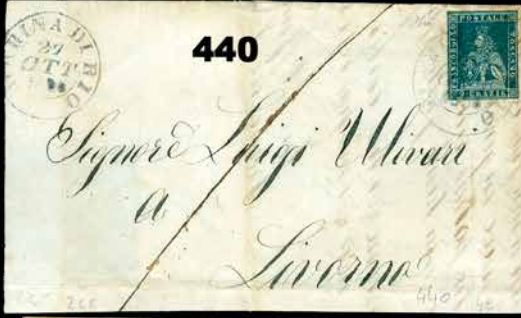 MARINA DI RIO
27
OTT
440
FRANCOBOLLO POSTALE TOSCANO
2 CRAZIE
Signore Luigi Ulivari
a
Livorno
440